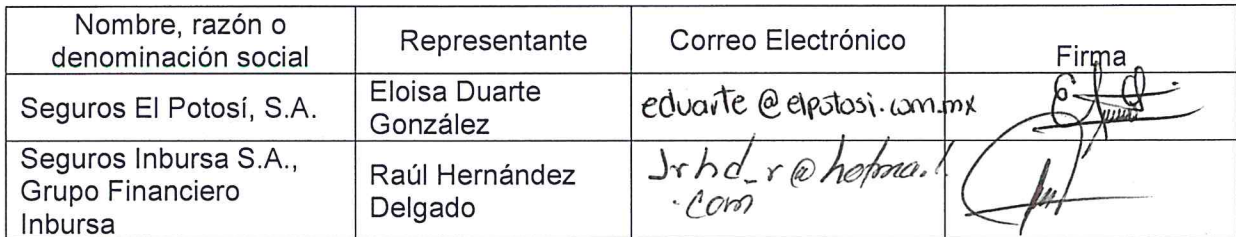 Nombre, razón o
denominación social
Representante
Correo Electrónico
Firma
Seguros El Potosí, S.A.
Eloisa Duarte
González
eduarte@elpotosi.com.mx
Seguros Inbursa S.A.,
Grupo Financiero
Inbursa
Raúl Hernández
Delgado
Jrhd_r@hotmail
.com